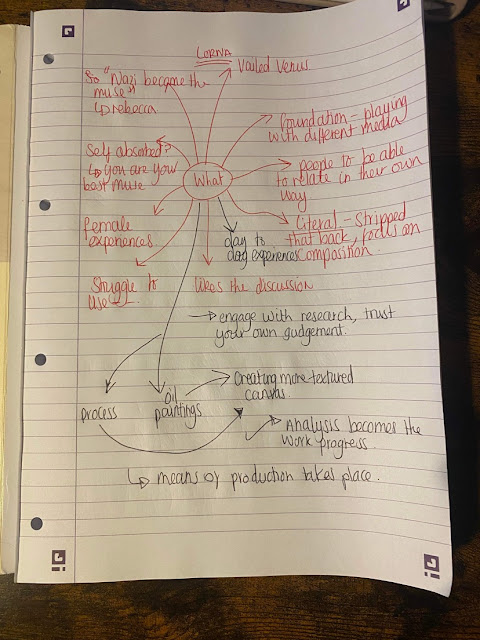 LORNA
Vailed Venus
So "Nazi become the
muse"
↳ rebecca
foundation - playing
with different media
Self absorbed?
↳ you are your
best muse
What
people to be able
to relate in their own
way
female
experiences
Literal - Stripped
that back, focus on
composition.
day to
day experiences
Struggle to
use
likes the discussion
→ engage with research, trust
your own gudgement.
process
oil
paintings
Creating more textured
canvas.
Analysis becomes the
work progress
↳ means of production takes place.